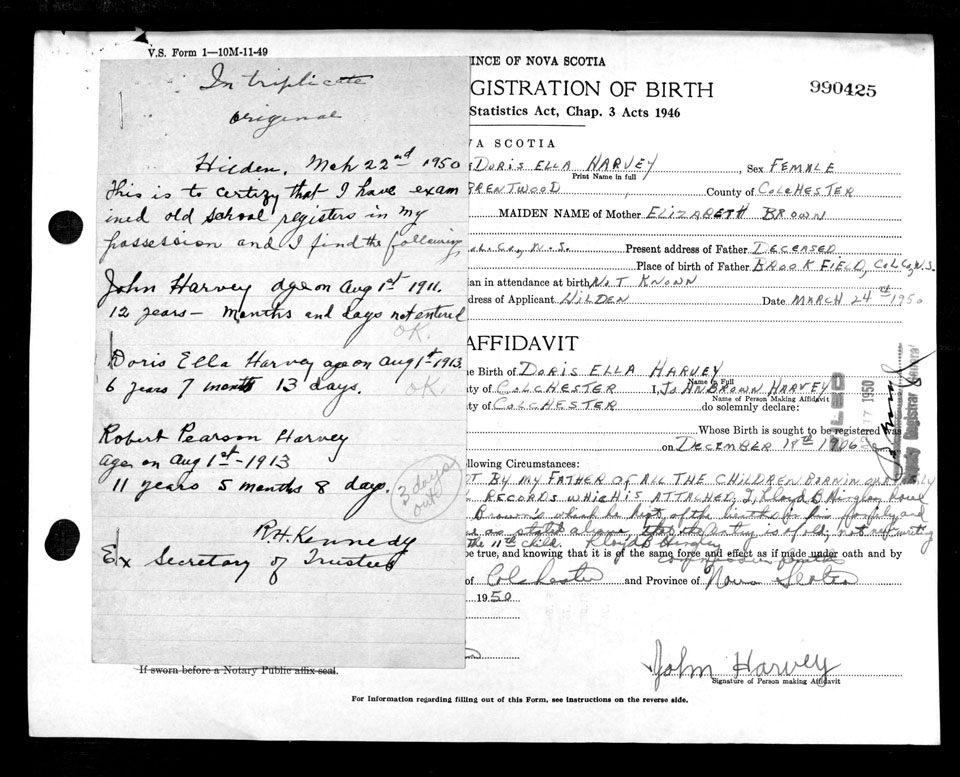 V.S. Form 1—10M-11-49
In triplicate
original
Hilden, Mch 22nd 1950
This is to certify that I have exam
ined old school registers in my
possession and I find the following
John Harvey age on Aug 1st 1911.
12 years — months and days not entered
OK.
Doris Ella Harvey age on Aug 1st 1913.
6 years 7 months 13 days.
OK
Robert Pearson Harvey
age on Aug 1st - 1913
11 years 5 months 8 days.
3 days out
R.H. Kennedy
Ex Secretary of Trustees
If sworn before a Notary Public affix seal.
INCE OF NOVA SCOTIA
GISTRATION OF BIRTH
990425
Statistics Act, Chap. 3 Acts 1946
A SCOTIA
DORIS ELLA HARVEY, Sex FEMALE
Print Name in full
BRENTWOOD County of COLCHESTER
MAIDEN NAME of Mother ELIZABETH BROWN
Col. Co., N.S. Present address of Father DECEASED
Place of birth of Father BROOKFIELD, COL.CO., N.S.
ian in attendance at birth NOT KNOWN
dress of Applicant HILDEN Date MARCH 24TH 1950
AFFIDAVIT
he Birth of DORIS ELLA HARVEY
Name in Full
ty of COLCHESTER I, JOHN BROWN HARVEY
Name of Person Making Affidavit
ty of COLCHESTER do solemnly declare:
Whose Birth is sought to be registered was
on DECEMBER 18TH 1906
17 1950
Deputy Registrar General
ollowing Circumstances:
T BY MY FATHER OF ALL THE CHILDREN BORN IN OUR FAMILY
RECORDS WHICH IS ATTACHED, I, Lloyd B
Brown's which he kept of the births in his family and
as stated above that the entry is of old, not of writing
the 11th child
be true, and knowing that it is of the same force and effect as if made under oath and by
of Colchester and Province of Nova Scotia
1950
John Harvey
Signature of Person making Affidavit
For Information regarding filling out of this Form, see instructions on the reverse side.